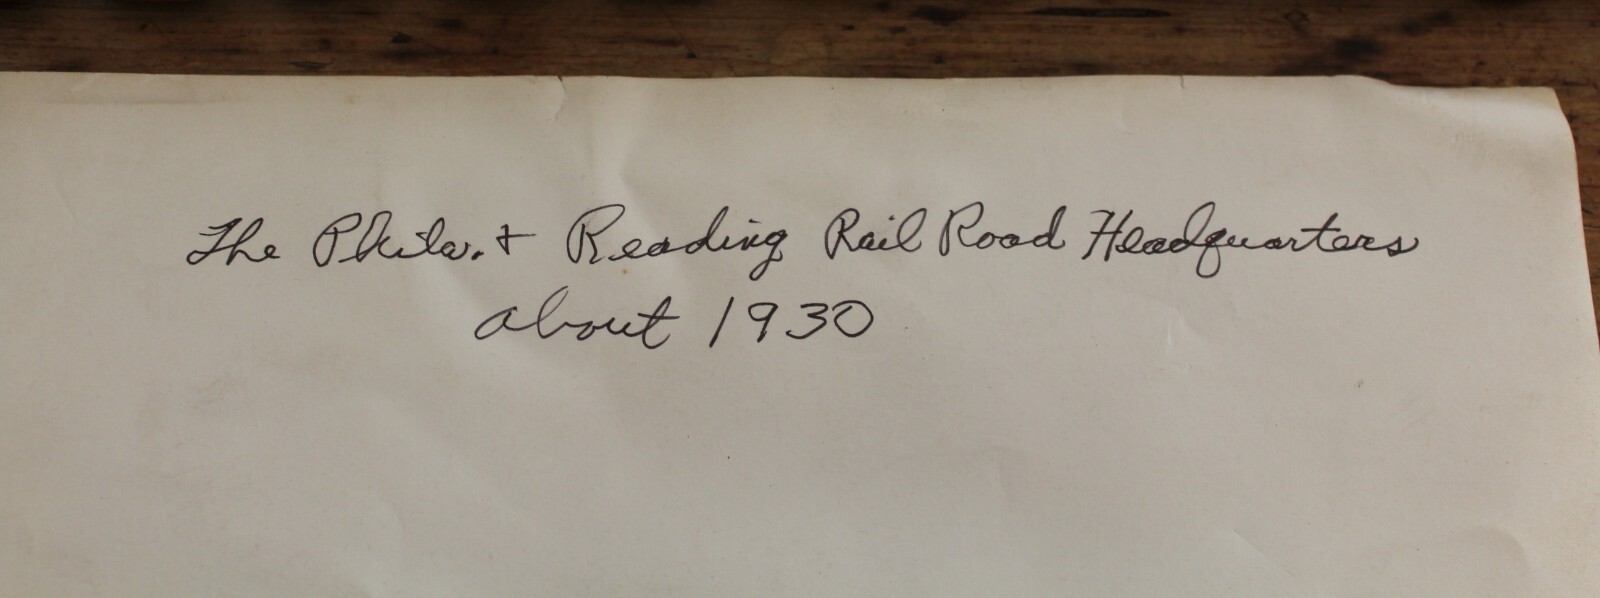 The Phila. + Reading Rail Road Headquarters
about 1930